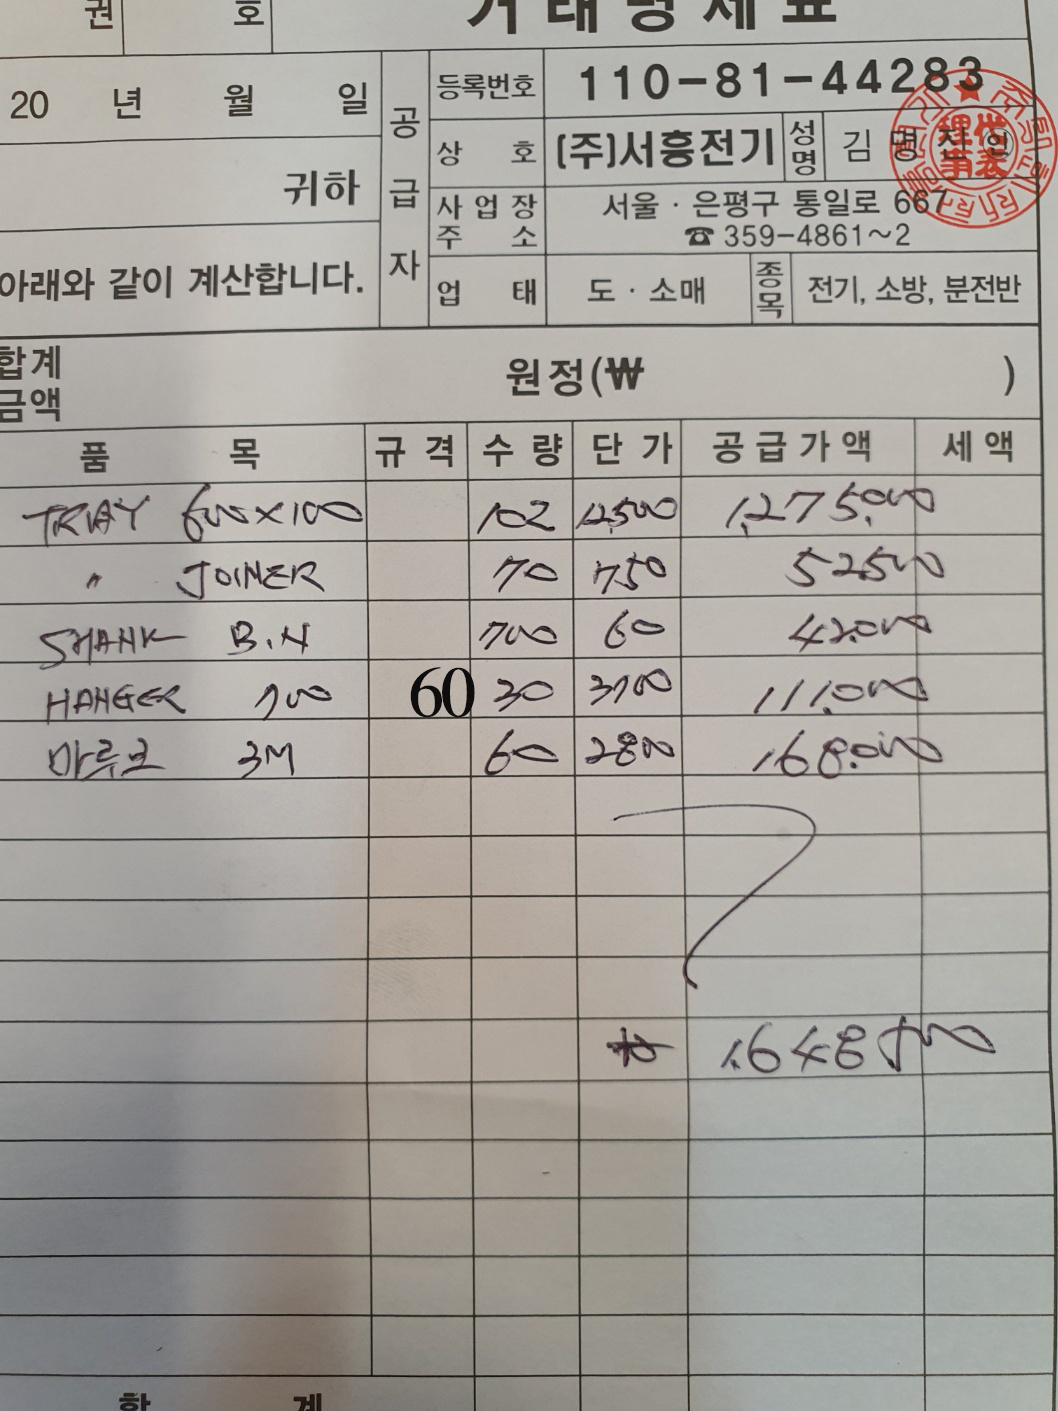 권 호 거래명세표
20 년 월 일
귀하
아래와 같이 계산합니다.
공급자
등록번호 110-81-44283
상 호 (주)서흥전기 성명 김명진 인
사업장주소 서울·은평구 통일로 667
☎ 359-4861~2
업 태 도·소매 종목 전기, 소방, 분전반
합계금액 원정(₩ )
품 목 규격 수량 단가 공급가액 세액
TRAY 600×100 102 12,500 1,275,000
〃 JOINER 70 750 52500
SHANK B.N 700 60 42.000
HANGER 700 60 30 3700 111.000
마루코 3M 60 2800 168.000
₩ 1,648500
합 계